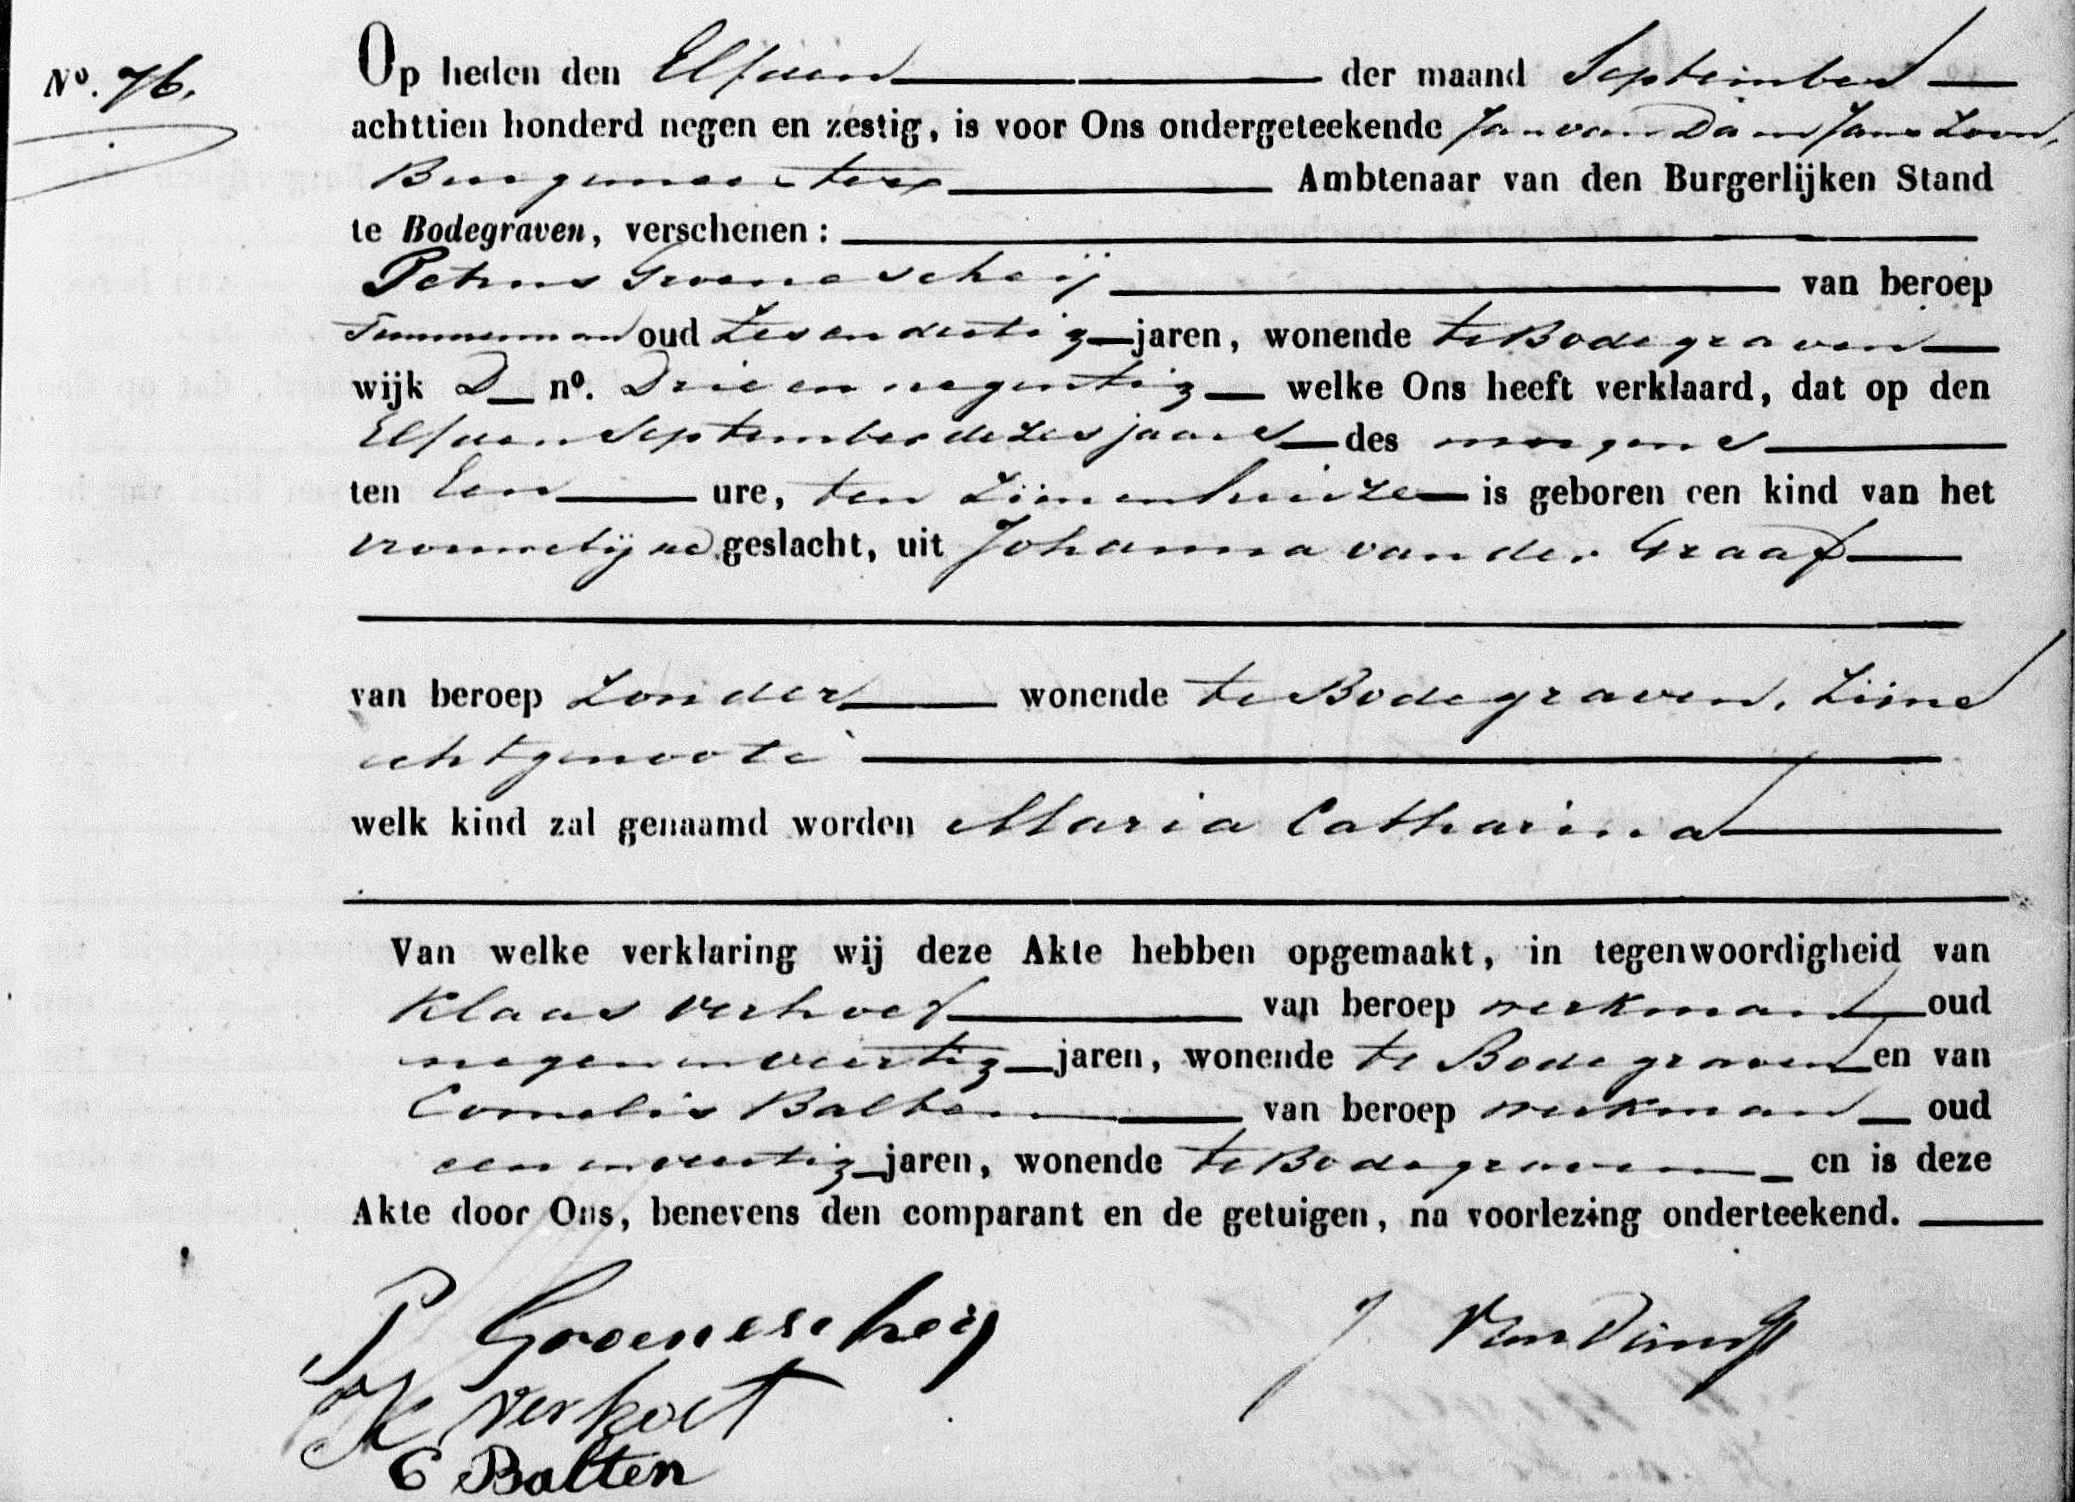 Nº. 76.
Op heden den Elfden der maand September
achttien honderd negen en zestig, is voor Ons ondergeteekende Jan van Dam Jans Zoon,
Burgemeester Ambtenaar van den Burgerlijken Stand
te Bodegraven, verschenen:
Petrus Groenescheij van beroep
Timmerman oud Zesendertig jaren, wonende te Bodegraven
wijk D nº. Drieennegentig welke Ons heeft verklaard, dat op den
Elfden September dezes jaars des morgens
ten Een ure, ten Zijnenhuize is geboren een kind van het
vrouwelijke geslacht, uit Johanna van der Graaf
van beroep Zonder wonende te Bodegraven, Zijne
echtgenoote
welk kind zal genaamd worden Maria Catharina
Van welke verklaring wij deze Akte hebben opgemaakt, in tegenwoordigheid van
Klaas Verhoef van beroep werkman oud
negenenveertig jaren, wonende te Bodegraven en van
Cornelis Balten van beroep werkman oud
eenenveertig jaren, wonende te Bodegraven en is deze
Akte door Ons, benevens den comparant en de getuigen, na voorlezing onderteekend.
P Groenescheij J Van Dam
K Verhoef
C Balten